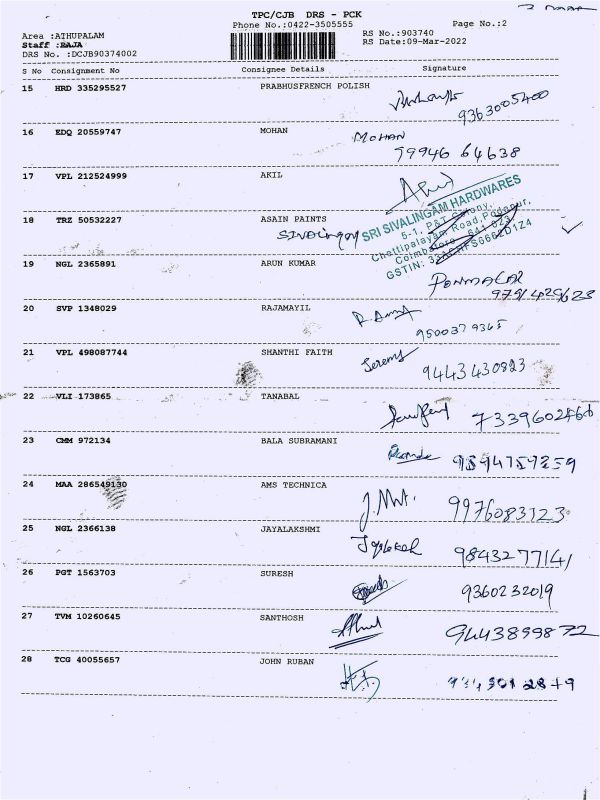 TPC/CJB DRS - PCK
Phone No.:0422-3505555 Page No.:2
Area :ATHUPALAM RS No.:903740
Staff :RAJA RS Date:09-Mar-2022
DRS No. :DCJB90374002
S No Consignment No Consignee Details Signature
15 HRD 335295527 PRABHUSFRENCH POLISH
9363005400
16 EDQ 20559747 MOHAN MOHAN
99946 64638
17 VPL 212524999 AKIL
18 TRZ 50532227 ASAIN PAINTS
SRI SIVALINGAM HARDWARES
5-1, P&T Colony,
Chettipalayam Road, Podanur,
Coimbatore - 641 023
GSTIN:
19 NGL 2365891 ARUN KUMAR
9791429623
20 SVP 1348029 RAJAMAYIL
9500379365
21 VPL 498087744 SHANTHI FAITH
9443430823
22 VLI 173865 TANABAL
7339602466
23 CMM 972134 BALA SUBRAMANI
24 MAA 286549130 AMS TECHNICA
9976083123
25 NGL 2366138 JAYALAKSHMI
9843277141
26 PGT 1563703 SURESH
9360232019
27 TVM 10260645 SANTHOSH
9443899872
28 TCG 40055657 JOHN RUBAN